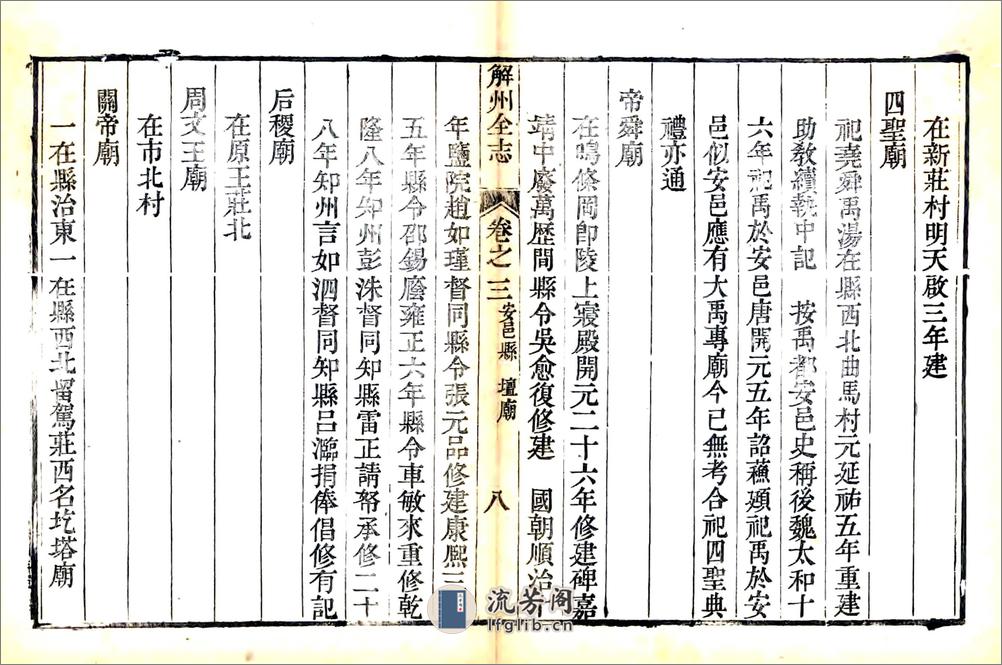 在新莊村明天啟三年建
四聖廟
祀堯舜禹湯在縣西北曲馬村元延祐五年重建
助教續執中記　按禹都安邑史稱後魏太和十
六年祀禹於安邑唐開元五年詔蘇頲祀禹於安
邑似安邑應有大禹專廟今已無考合祀四聖典
禮亦通
帝舜廟
在鳴條岡卽陵上寢殿開元二十六年修建碑嘉
靖中廢萬歷間縣令吳愈復修建　國朝順治
解州全志　卷之三　安邑縣　壇廟　八
年鹽院趙如瑾督同縣令張元品修建康熙三
五年縣令邵錫廕雍正六年縣令車敏來重修乾
隆八年知州彭洙督同知縣雷正請帑承修二十
八年知州言如泗督同知縣呂瀶捐俸倡修有記
后稷廟
在原王莊北
周文王廟
在市北村
關帝廟
一在縣治東一在縣西北留駕莊西名圪塔廟
流芳阁
lfglib.cn